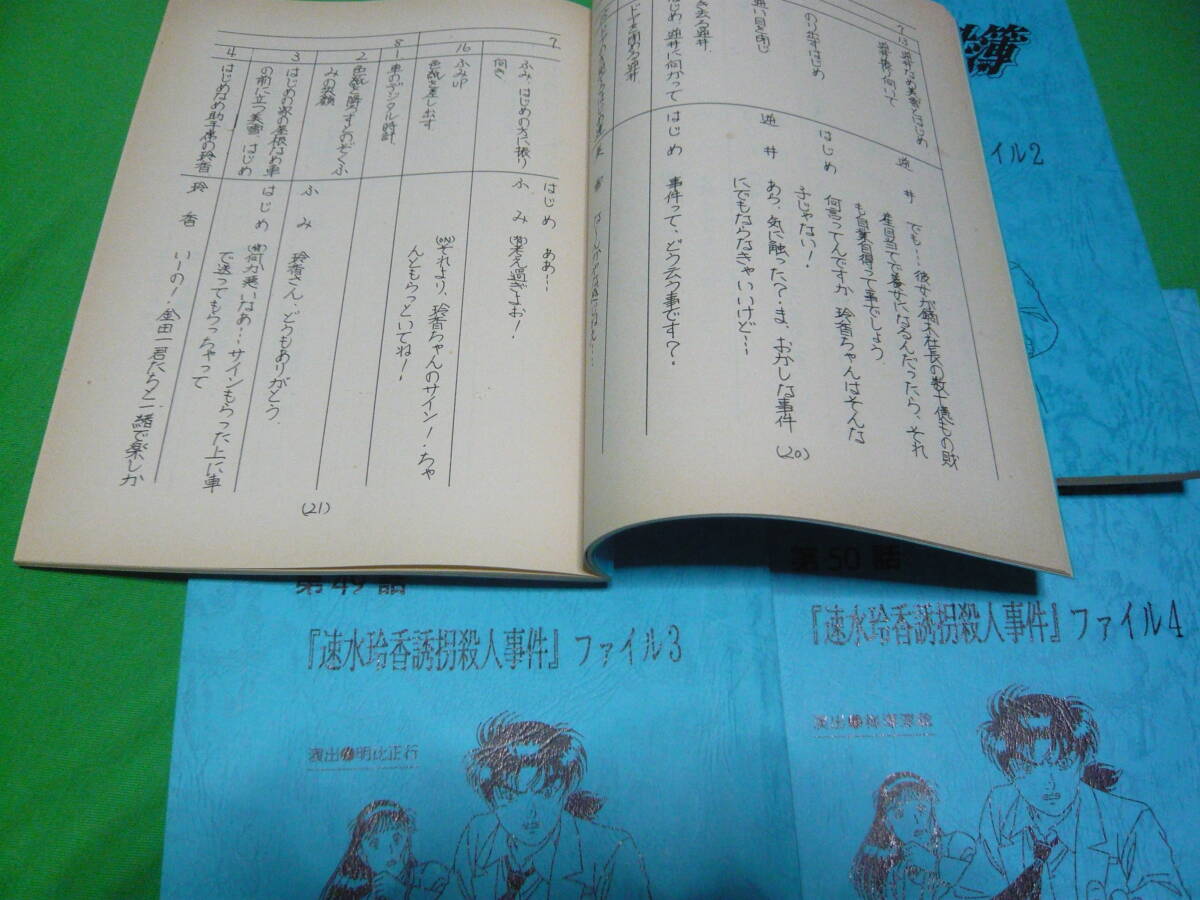 簿
イル2
7 13
逆井なめ美雪とはじめ
逆井振り向いて
逆 井
でも…彼女が鏑木社長の数十億もの財
産目当てで養女になるんだったら、それ
も自業自得って事でしょう
のり出すはじめ
はじめ
何言ってんですか 玲香ちゃんはそんな
子じゃない!
逆 井
あら、気に触った?・ま、おかしな事件
にでもならなきゃいいけど…
き去る逆井
逆井に向かって
はじめ
事件って、どう云う事です?
(20)
7
ふみ、はじめの方に振り
向き
はじめ
ああ…
ふ み
考え過ぎよお!
16
ふみUP
色紙を差し出す
それより、玲香ちゃんのサイン!・ちゃ
んともらっといてね!
8
1
車のデジタル時計
2
色紙を勝ろすとのぞくふ
みの笑顔
ふ み
玲香さん・どうもありがとう
3
はじめの家の屋根なめ車
の前に立つ美雪 はじめ
はじめ
何か悪いなあ…サインもらった上に車
で送ってもらっちゃって
4
はじめなめ助手席の玲香
玲 香
いーの!・金田一君たちと一緒で楽しか
(21)
第49話
『速水玲香誘拐殺人事件』ファイル3
演出 明比正行
第50話
『速水玲香誘拐殺人事件』ファイル4
演出